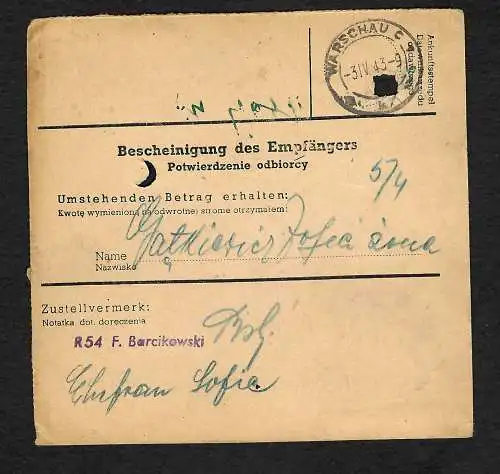 WARSCHAU C
-3IV.43-9
Ankunftsstempel
Bescheinigung des Empfängers
Potwierdzenie odbiorcy
5/4
Umstehenden Betrag erhalten:
Kwotę wymienioną na odwrotnej stronie otrzymałem:
Name
Nazwisko
Zofia żona
Zustellvermerk:
Notatka dot. doręczenia
R54 F. Barcikowski
Sofie